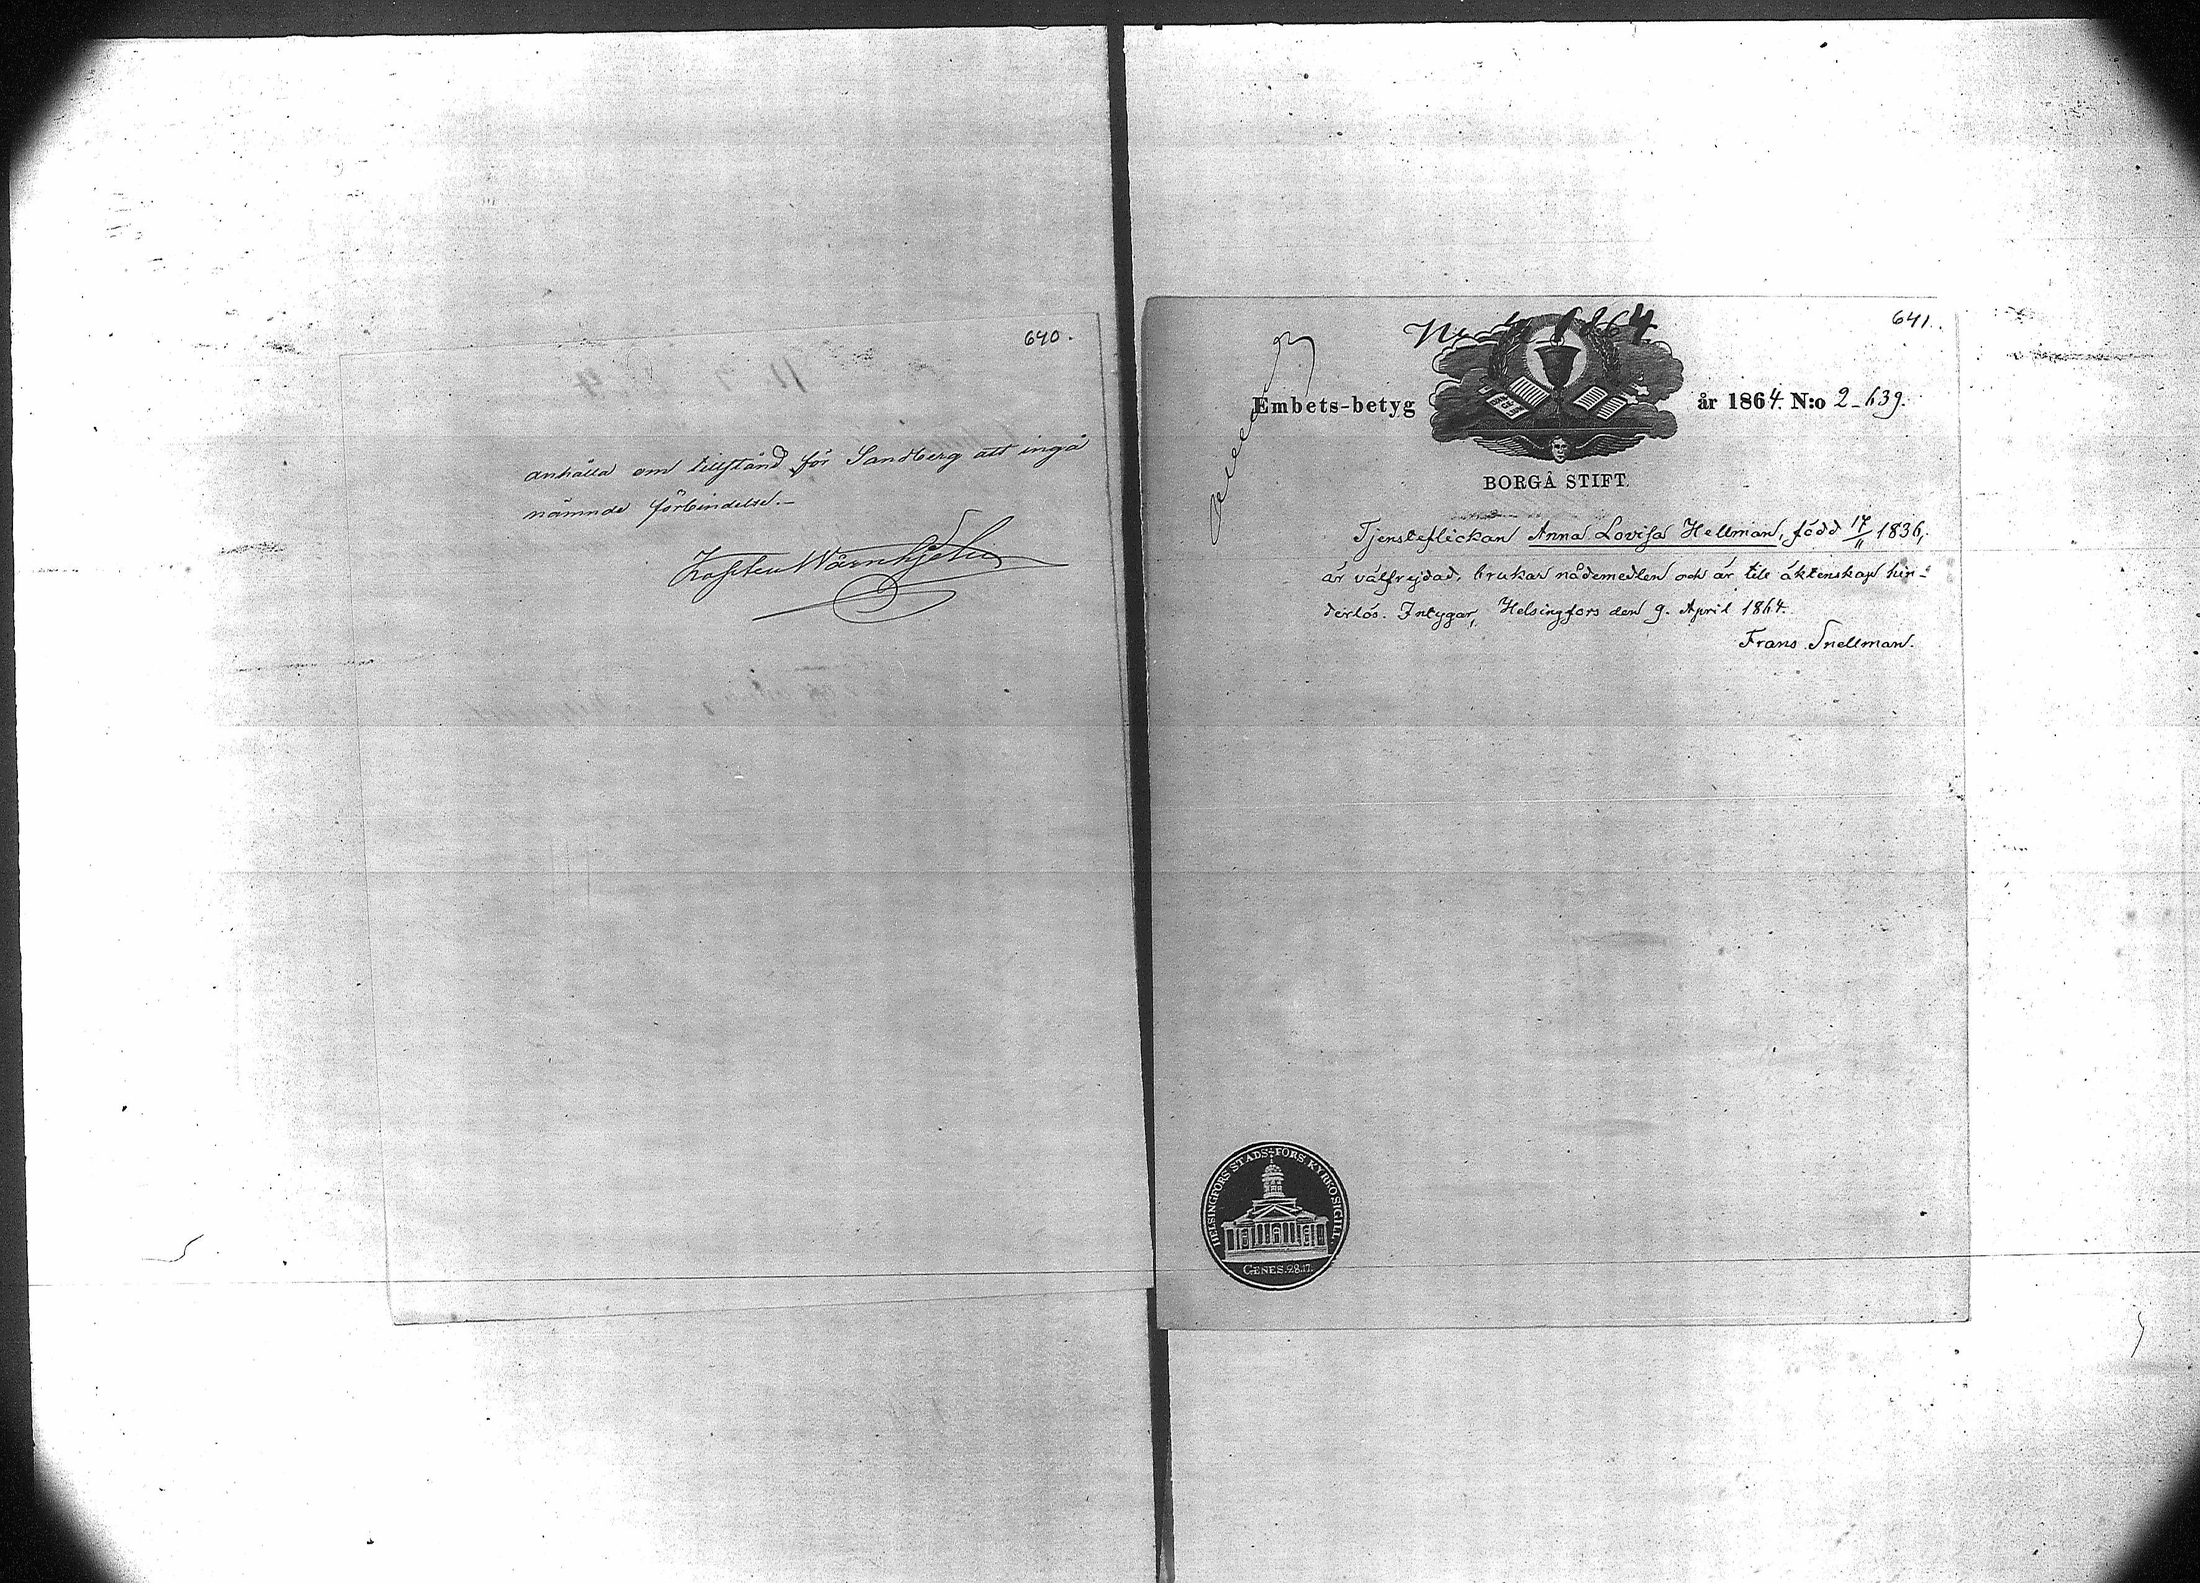 640.
anhålla om tillstånd för Sandberg att ingå
nämnde förbindelse.—
641.
No 4 1864
Embets-betyg år 1864. N:o 2_639.
BORGÅ STIFT.
Tjensteflickan Anna Lovisa Hellman, född 17/11 1836,
är välfrejdad, brukar nådemedlen och är till äktenskap hin-
derlös. Intygar, Helsingfors den 9. April 1864.
Frans Snellman.
HELSINGFORS STADS FÖRS. KYRKOSIGILL.
GENES. 28. 17.